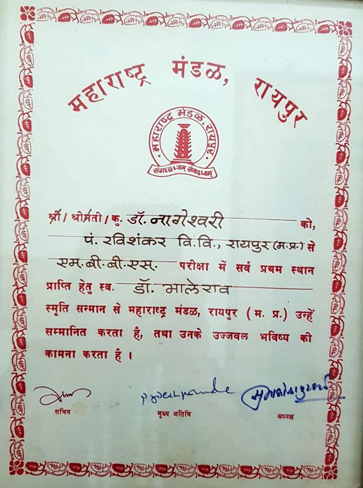 महाराष्ट्र मंडळ, रायपुर
महाराष्ट्र मंडळ, रायपुर
श्री/ श्रीमती/ कु. डॉ. नागेश्वरी को,
पं. रविशंकर वि. वि., रायपुर (म. प्र.) से
एम. बी. बी. एस. परीक्षा में सर्व प्रथम स्थान
प्राप्ति हेतु स्व. डॉ. भालेराव
स्मृति सम्मान से महाराष्ट्र मंडळ, रायपुर (म. प्र.) उन्हें
सम्मानित करता है, तथा उनके उज्जवल भविष्य की
कामना करता है ।
सचिव मुख्य अतिथि अध्यक्ष